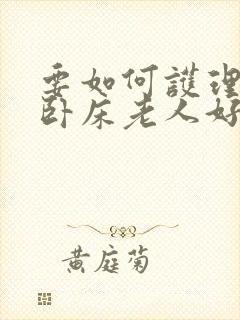 要如何護理
卧床老人好
黄庭菊